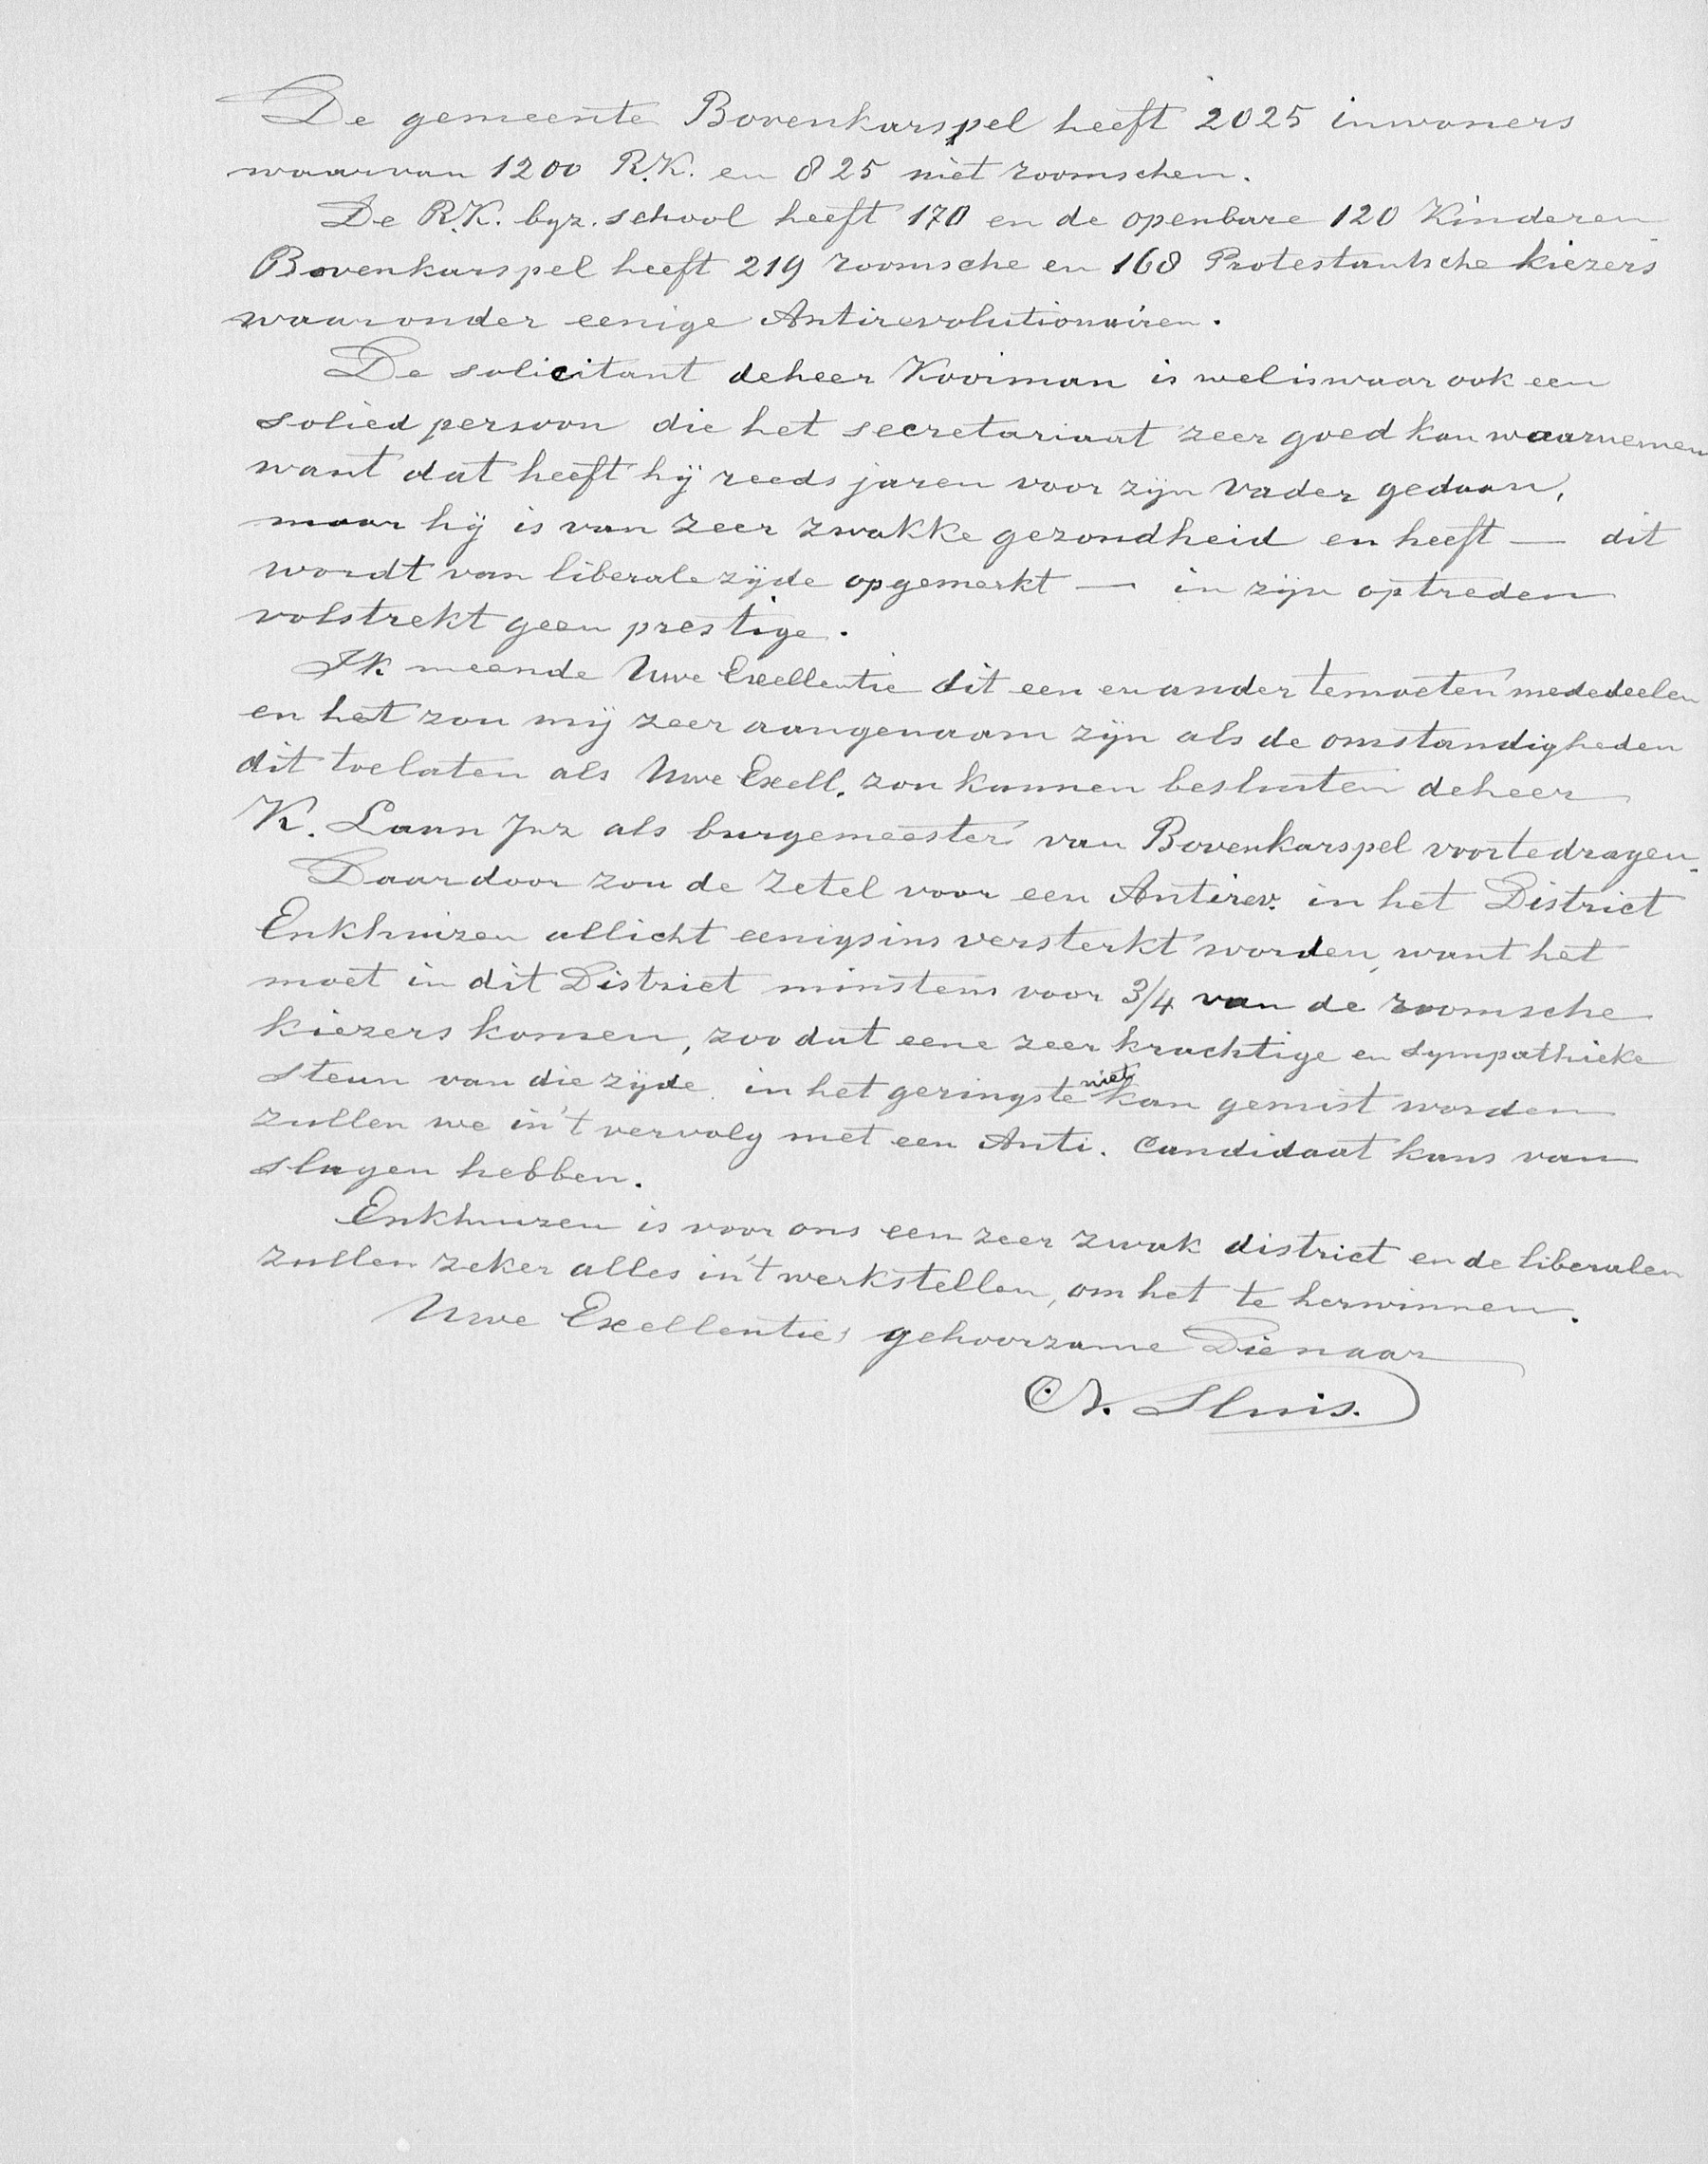 De gemeente Bovenkarspel heeft 2025 inwoners
waarvan 1200 R.K. en 825 niet roomschen.
De R.K. byz. school heeft 170 en de openbare 120 Kinderen
Bovenkarspel heeft 219 roomsche en 168 Protestantsche kiezers
waaronder eenige Antirevolutionairen.
De solicitant deheer Kooiman is weliswaar ook een
solied persoon die het secretariaat zeer goed kan waarnemen
want dat heeft hij reeds jaren voor zijn vader gedaan,
maar hij is van zeer zwakke gezondheid en heeft — dit
wordt van liberale zijde opgemerkt — in zijn optreden
volstrekt geen prestige.
Ik meende Uwe Exellentie dit een en ander temoeten mededeelen
en het zou mij zeer aangenaam zijn als de omstandigheden
dit toelaten als Uwe Exell. zou kunnen besluiten deheer
K. Laan Jnz als burgemeester van Bovenkarspel voortedragen.
Daardoor zou de zetel voor een Antirev. in het District
Enkhuizen allicht eenigsins versterkt worden, want het
moet in dit District minstens voor 3/4 van de roomsche
kiezers komen, zoo dat eene zeer krachtige en sympathieke
steun van die zijde in het geringste niet kan gemist worden
zullen we in't vervolg met een Anti. Candidaat kans van
slagen hebben.
Enkhuizen is voor ons een zeer zwak district en de liberalen
zullen zeker alles in't werkstellen, om het te herwinnen.
Uwe Exellenties gehoorzame Dienaar
N. Sluis.